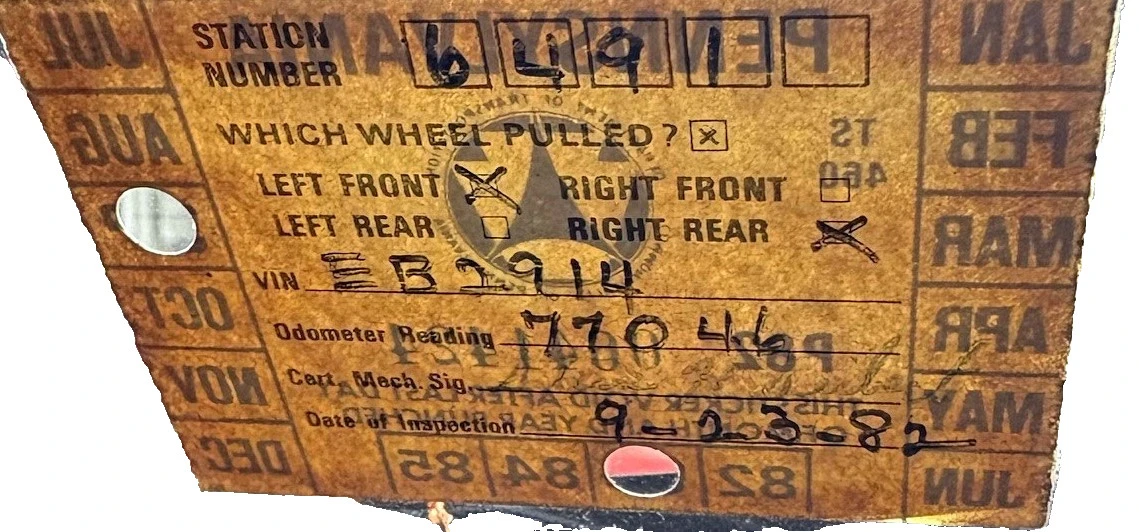 STATION
NUMBER 6 4 9 1
WHICH WHEEL PULLED? X
LEFT FRONT X RIGHT FRONT
LEFT REAR RIGHT REAR X
VIN EB2914
Odometer Reading 77046
Cert. Mech. Sig.
Date of Inspection 9-23-82
JUL
AUG
OCT
NOV
DEC
JAN
FEB
MAR
APR
MAY
JUN
85 84 82
PENNSYLVANIA
TS
469
P62